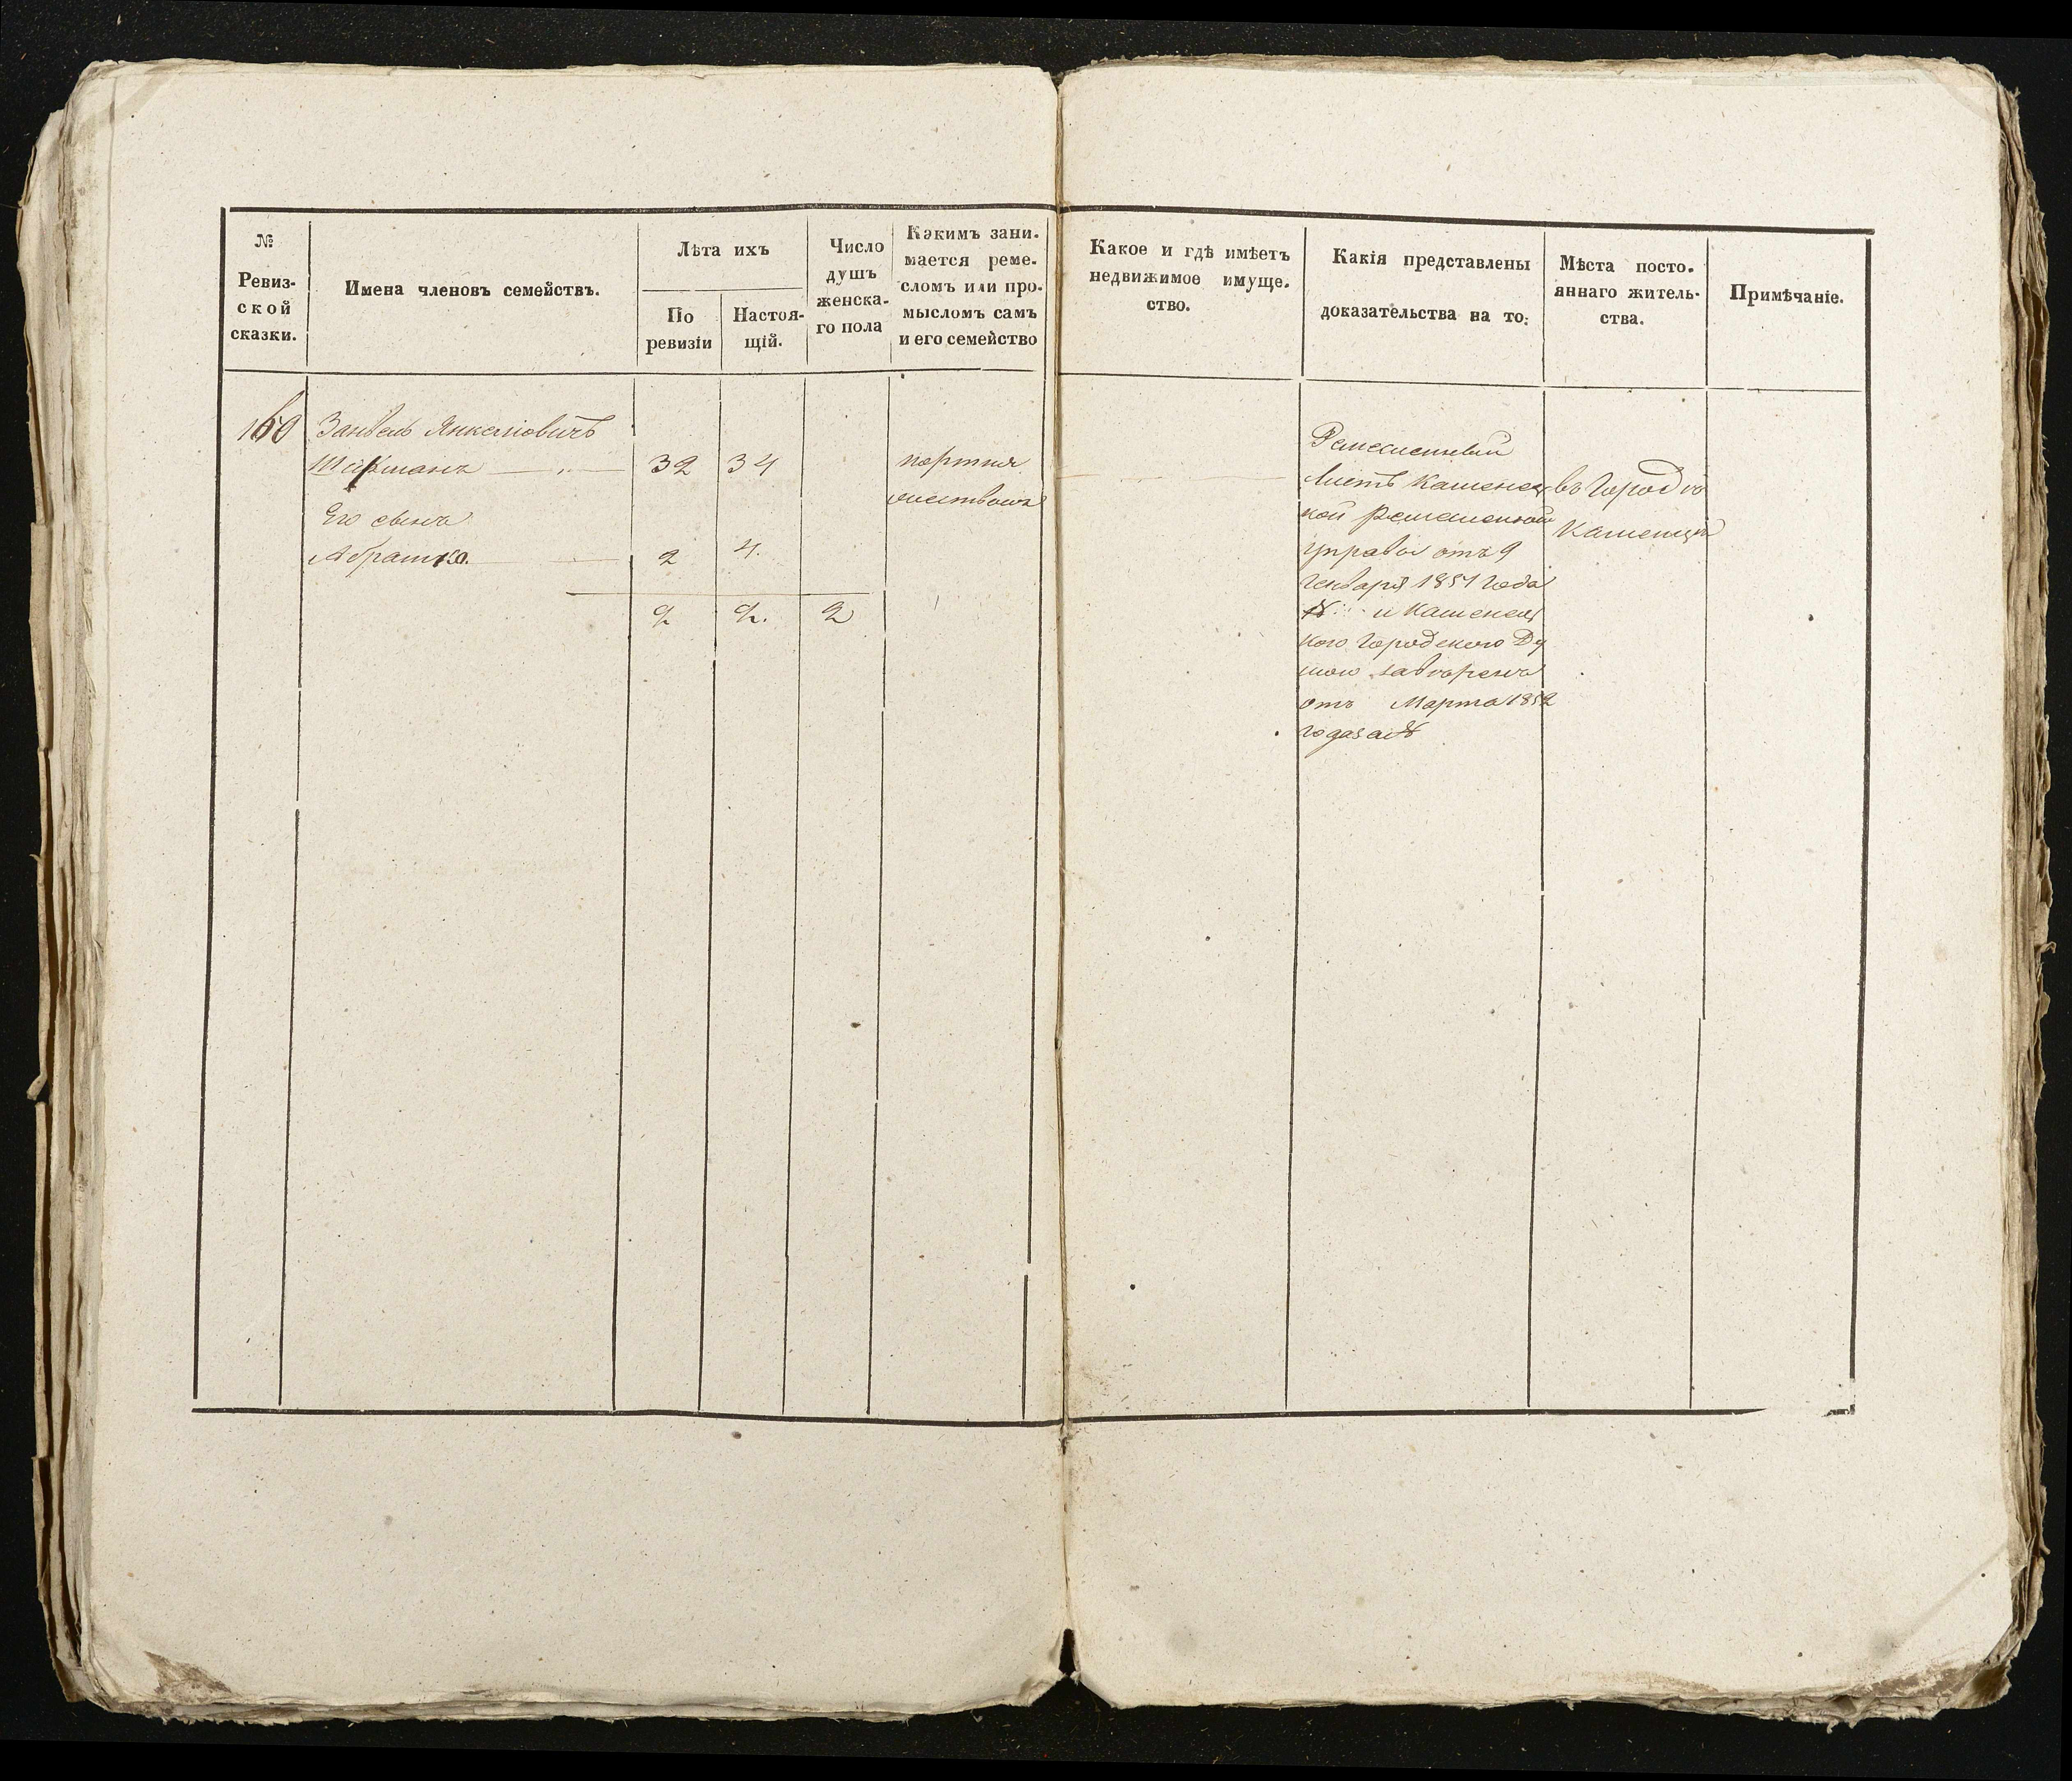 №
Ревиз-
ской
сказки.
Имена членовъ семействъ.
Лѣта ихъ
По
ревизіи
Настоя-
щій.
Число
душъ
женска-
го пола
Какимъ зани-
мается реме-
сломъ или про-
мысломъ самъ
и его семейство
Какое и гдѣ имѣетъ
недвижимое имуще-
ство.
Какія представлены
доказательства на то:
Мѣста посто-
яннаго житель-
ства.
Примѣчаніе.
160
Занвель Янкеліовичъ
32 34
Его сынъ
Абрамко 2 4.
2 2. 2
портня
жествомъ
Ремесленный
листъ Каменец
кой Ремесленной
управы отъ 9
Генваря 1851 года
№ и Каменец
кого Городского Ду
мою
отъ Марта 1852
года за №
въ Городѣ
Каменцѣ